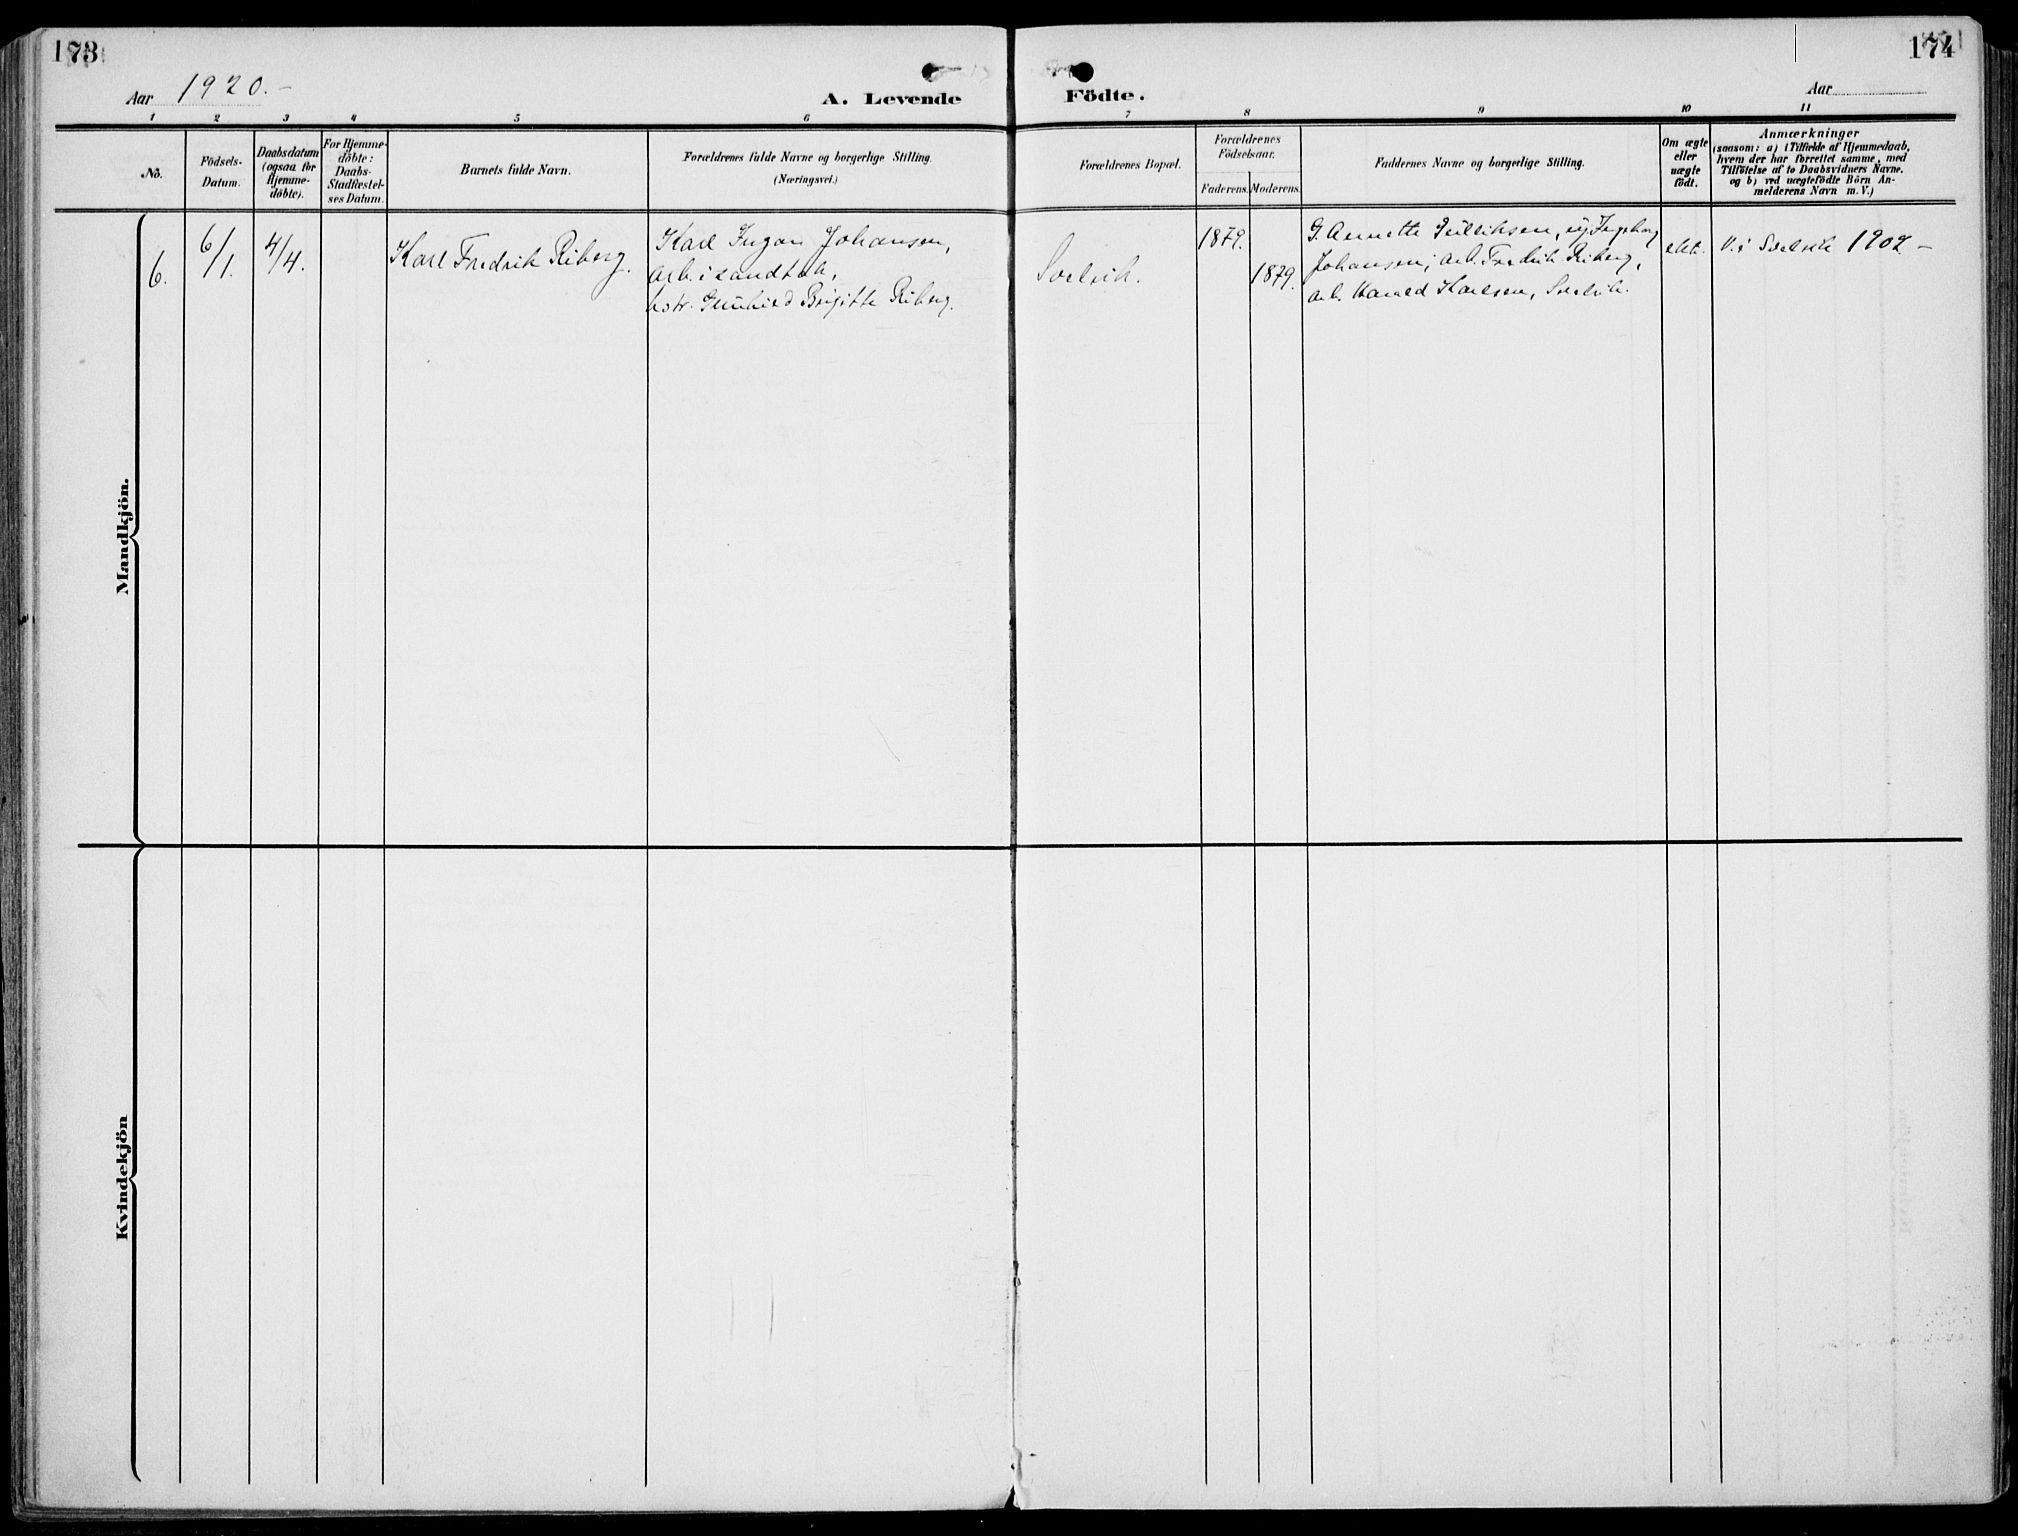 173
174
Aar 1920.-
A. Levende
Födte.
Aar
1 2 3 4 5 6
7 8 9 10 11
No.
Födsels-
Datum.
Daabsdatum
(ogsaa for
Hjemme-
döbte).
For Hjemme-
döbte:
Daabs-
Stadfæstel-
ses Datum.
Barnets fulde Navn.
Forældrenes fulde Navne og borgerlige Stilling.
(Næringsvei.)
Forældrenes Bopæl.
Forældrenes
Födselsaar.
Faderens.
Moderens.
Faddernes Navne og borgerlige Stilling.
Om ægte
eller
uægte
födt.
Anmærkninger
(saasom: a) i Tilfælde af Hjemmedaab,
hvem der har forrettet samme, med
Tilföielse af to Daabsvidners Navne.
og b) ved uægtefödte Börn An-
melderens Navn m. V.)
Mandkjön.
6.
6/1.
4/4.
Karl Fredrik Riberg.
Karl Ingan Johansen,
arb. i sandtak,
hstr. Brigitte Riberg.
Svelvik.
1879.
1879.
G. Annette Gulliksen, uj. Ingeborg
Johansen; arb. Fredrik Riberg,
arb. Harald Karlsen, Svelvik.
ekte.
V. i Svelvik 1902 -
Kvindekjön